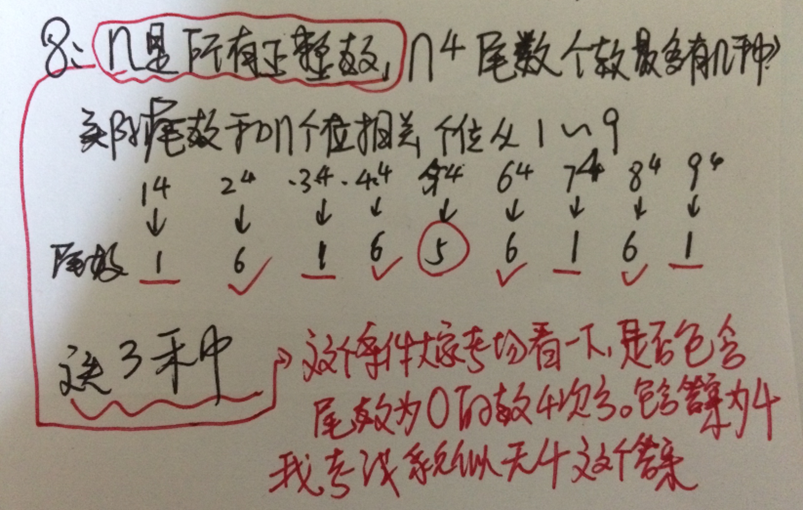 8、n是所有正整数, n⁴尾数个数最多有几种?
实际尾数于n个位相关,个位从1~9
1⁴ 2⁴ 3⁴ 4⁴ 5⁴ 6⁴ 7⁴ 8⁴ 9⁴
↓ ↓ ↓ ↓ ↓ ↓ ↓ ↓ ↓
尾数 1 6 1 6 5 6 1 6 1
选3种
这个条件大家考场看一下,是否包含
尾数为0的数4次方。包含答案为4
我考试系似无4这个答案